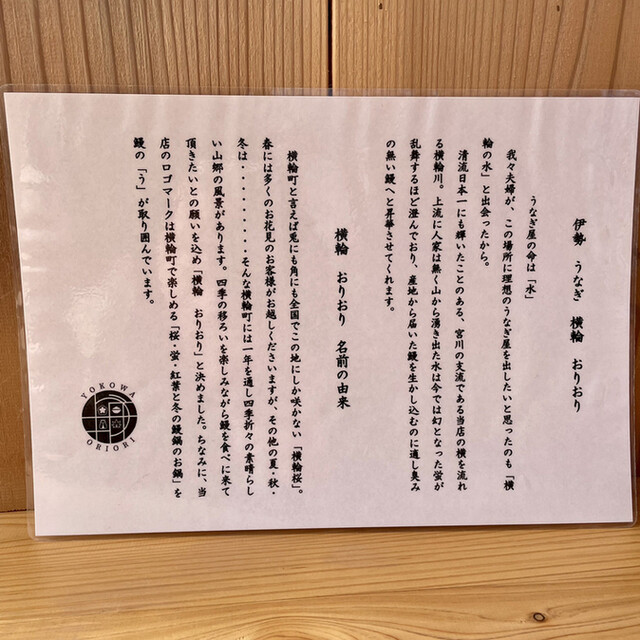 伊勢 うなぎ 横輪 おりおり
うなぎ屋の命は「水」
我々夫婦が、この場所に理想のうなぎ屋を出したいと思ったのも「横
輪の水」と出会ったから。
清流日本一にも輝いたことのある、宮川の支流である当店の横を流れ
る横輪川。上流に人家は無く山から湧き出た水は今では幻となった蛍が
乱舞するほど澄んでおり、産地から届いた鰻を生かし込むのに適し臭み
の無い鰻へと昇華させてくれます。
横輪 おりおり 名前の由来
横輪町と言えば兎にも角にも全国でこの地にしか咲かない「横輪桜」。
春には多くのお花見のお客様がお越しくださいますが、その他の夏・秋・
冬は・・・・・・・・・そんな横輪町には一年を通し四季折々の素晴らし
い山郷の風景があります。四季の移ろいを楽しみながら鰻を食べに来て
頂きたいとの願いを込め「横輪 おりおり」と決めました。ちなみに、当
店のロゴマークは横輪町で楽しめる「桜・蛍・紅葉と冬の鰻鍋のお鍋」を
鰻の「う」が取り囲んでいます。
YOKOWA
ORIORI